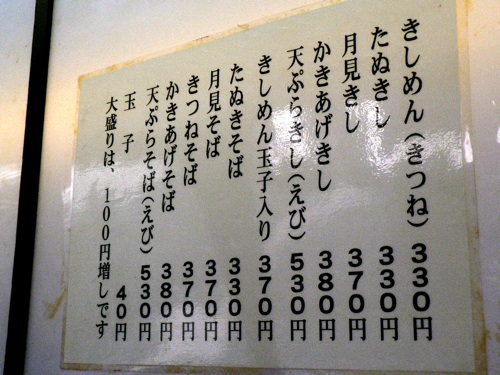 きしめん(きつね)330円
たぬきし330円
月見きし370円
かきあげきし380円
天ぷらきし(えび)530円
きしめん玉子入り370円
たぬきそば330円
月見そば370円
きつねそば370円
かきあげそば380円
天ぷらそば(えび)530円
玉子40円
大盛りは、100円増しです